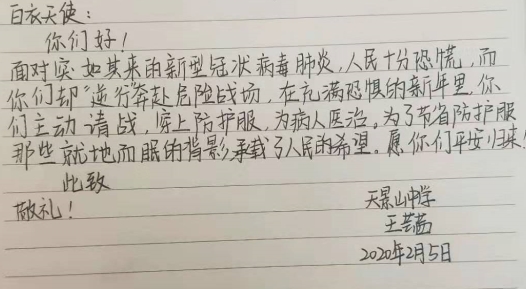 白衣天使：
你们好！
面对突如其来的新型冠状病毒肺炎,人民十分恐慌,而
你们却“逆行”奔赴危险战场,在充满恐惧的新年里,你
们主动请战,穿上防护服,为病人医治。为了节省防护服
那些就地而眠的背影承载了人民的希望。愿你们平安归来
此致
敬礼！
天景山中学
王芸菡
2020年2月5日